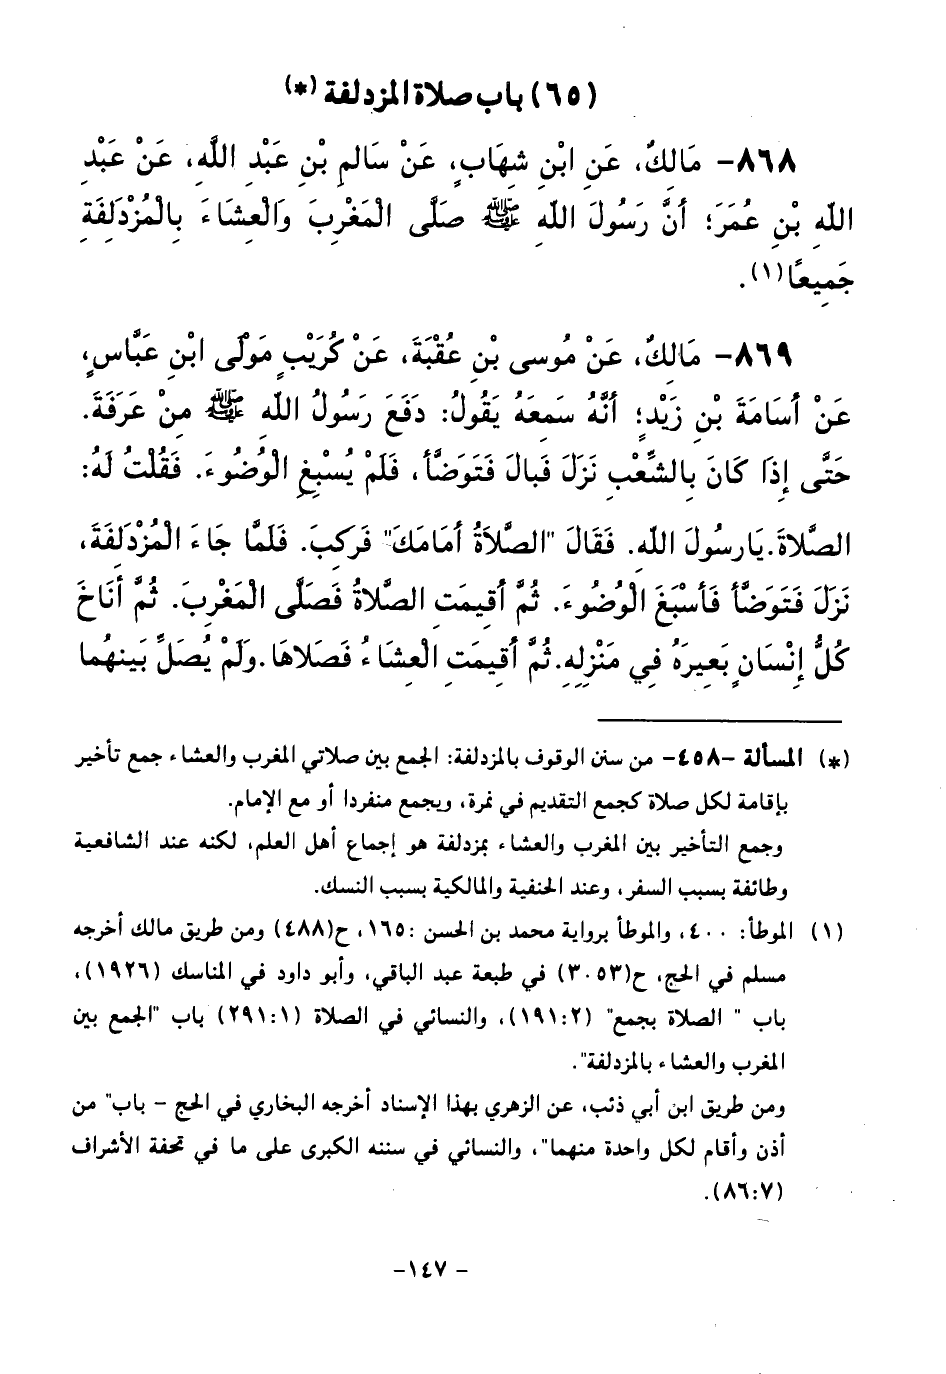 (٦٥) باب صلاة المزدلفة (*)
٨٦٨- مَالِكٌ، عَنِ ابْنِ شِهَابٍ، عَنْ سَالِمِ بْنِ عَبْدِ اللَّهِ، عَنْ عَبْدِ
اللَّهِ بْنِ عُمَرَ؛ أَنَّ رَسُولَ اللهِ ﷺ صَلَّى الْمَغْرِبَ وَالْعِشَاءَ بِالْمُزْدَلِفَةِ
جَمِيعًا(١).
٨٦٩- مَالِكٌ، عَنْ مُوسى بْنِ عُقْبَةَ، عَنْ كُرَيْبٍ مَوْلَى ابْنِ عَبَّاسٍ،
عَنْ أُسَامَةَ بْنِ زَيْدٍ؛ أَنَّهُ سَمِعَهُ يَقُولُ: دَفَعَ رَسُولُ اللهِ ﷺ مِنْ عَرَفَةَ.
حَتَّى إِذَا كَانَ بِالشِّعْبِ نَزَلَ فَبالَ فَتَوَضَّأَ، فَلَمْ يُسْبِغِ الْوُضُوءَ. فَقُلْتُ لَهُ:
الصَّلاةَ. يَارسُولَ اللهِ. فَقَالَ "الصَّلاَةُ أَمَامَكَ" فَرَكِبَ. فَلَمَّا جَاءَ الْمُزْدَلِفَةَ،
نَزَلَ فَتَوَضَّأَ فَأَسْبَغَ الْوُضُوءَ. ثُمَّ أُقِيمَتِ الصَّلاةُ فَصَلَّى الْمَغْرِبَ. ثُمَّ أَنَاخَ
كُلُّ إِنْسَانٍ بَعِيرَهُ فِي مَنْزِلِهِ. ثُمَّ أُقِيمَتِ الْعِشَاءُ فَصَلاهَا. وَلَمْ يُصَلِّ بَينهُما
(*) المسألة -٤٥٨- من سنن الوقوف بالمزدلفة: الجمع بين صلاتي المغرب والعشاء جمع تأخير
بإقامة لكل صلاة كجمع التقديم في نمرة، ويجمع منفردا أو مع الإمام.
وجمع التأخير بين المغرب والعشاء بمزدلفة هو إجماع أهل العلم، لكنه عند الشافعية
وطائفة بسبب السفر، وعند الحنفية والمالكية بسبب النسك.
(١) الموطأ: ٤٠٠، والموطأ برواية محمد بن الحسن :١٦٥، ح(٤٨٨) ومن طريق مالك أخرجه
مسلم في الحج، ح(٣٠٥٣) في طبعة عبد الباقي، وأبو داود في المناسك (١٩٢٦)،
باب " الصلاة بجمع" (١٩١:٢)، والنسائي في الصلاة (٢٩١:١) باب "الجمع بين
المغرب والعشاء بالمزدلفة".
ومن طريق ابن أبي ذئب، عن الزهري بهذا الإسناد أخرجه البخاري في الحج - باب" من
أذن وأقام لكل واحدة منهما"، والنسائي في سننه الكبرى على ما في تحفة الأشراف
(٨٦:٧).
- ١٤٧-